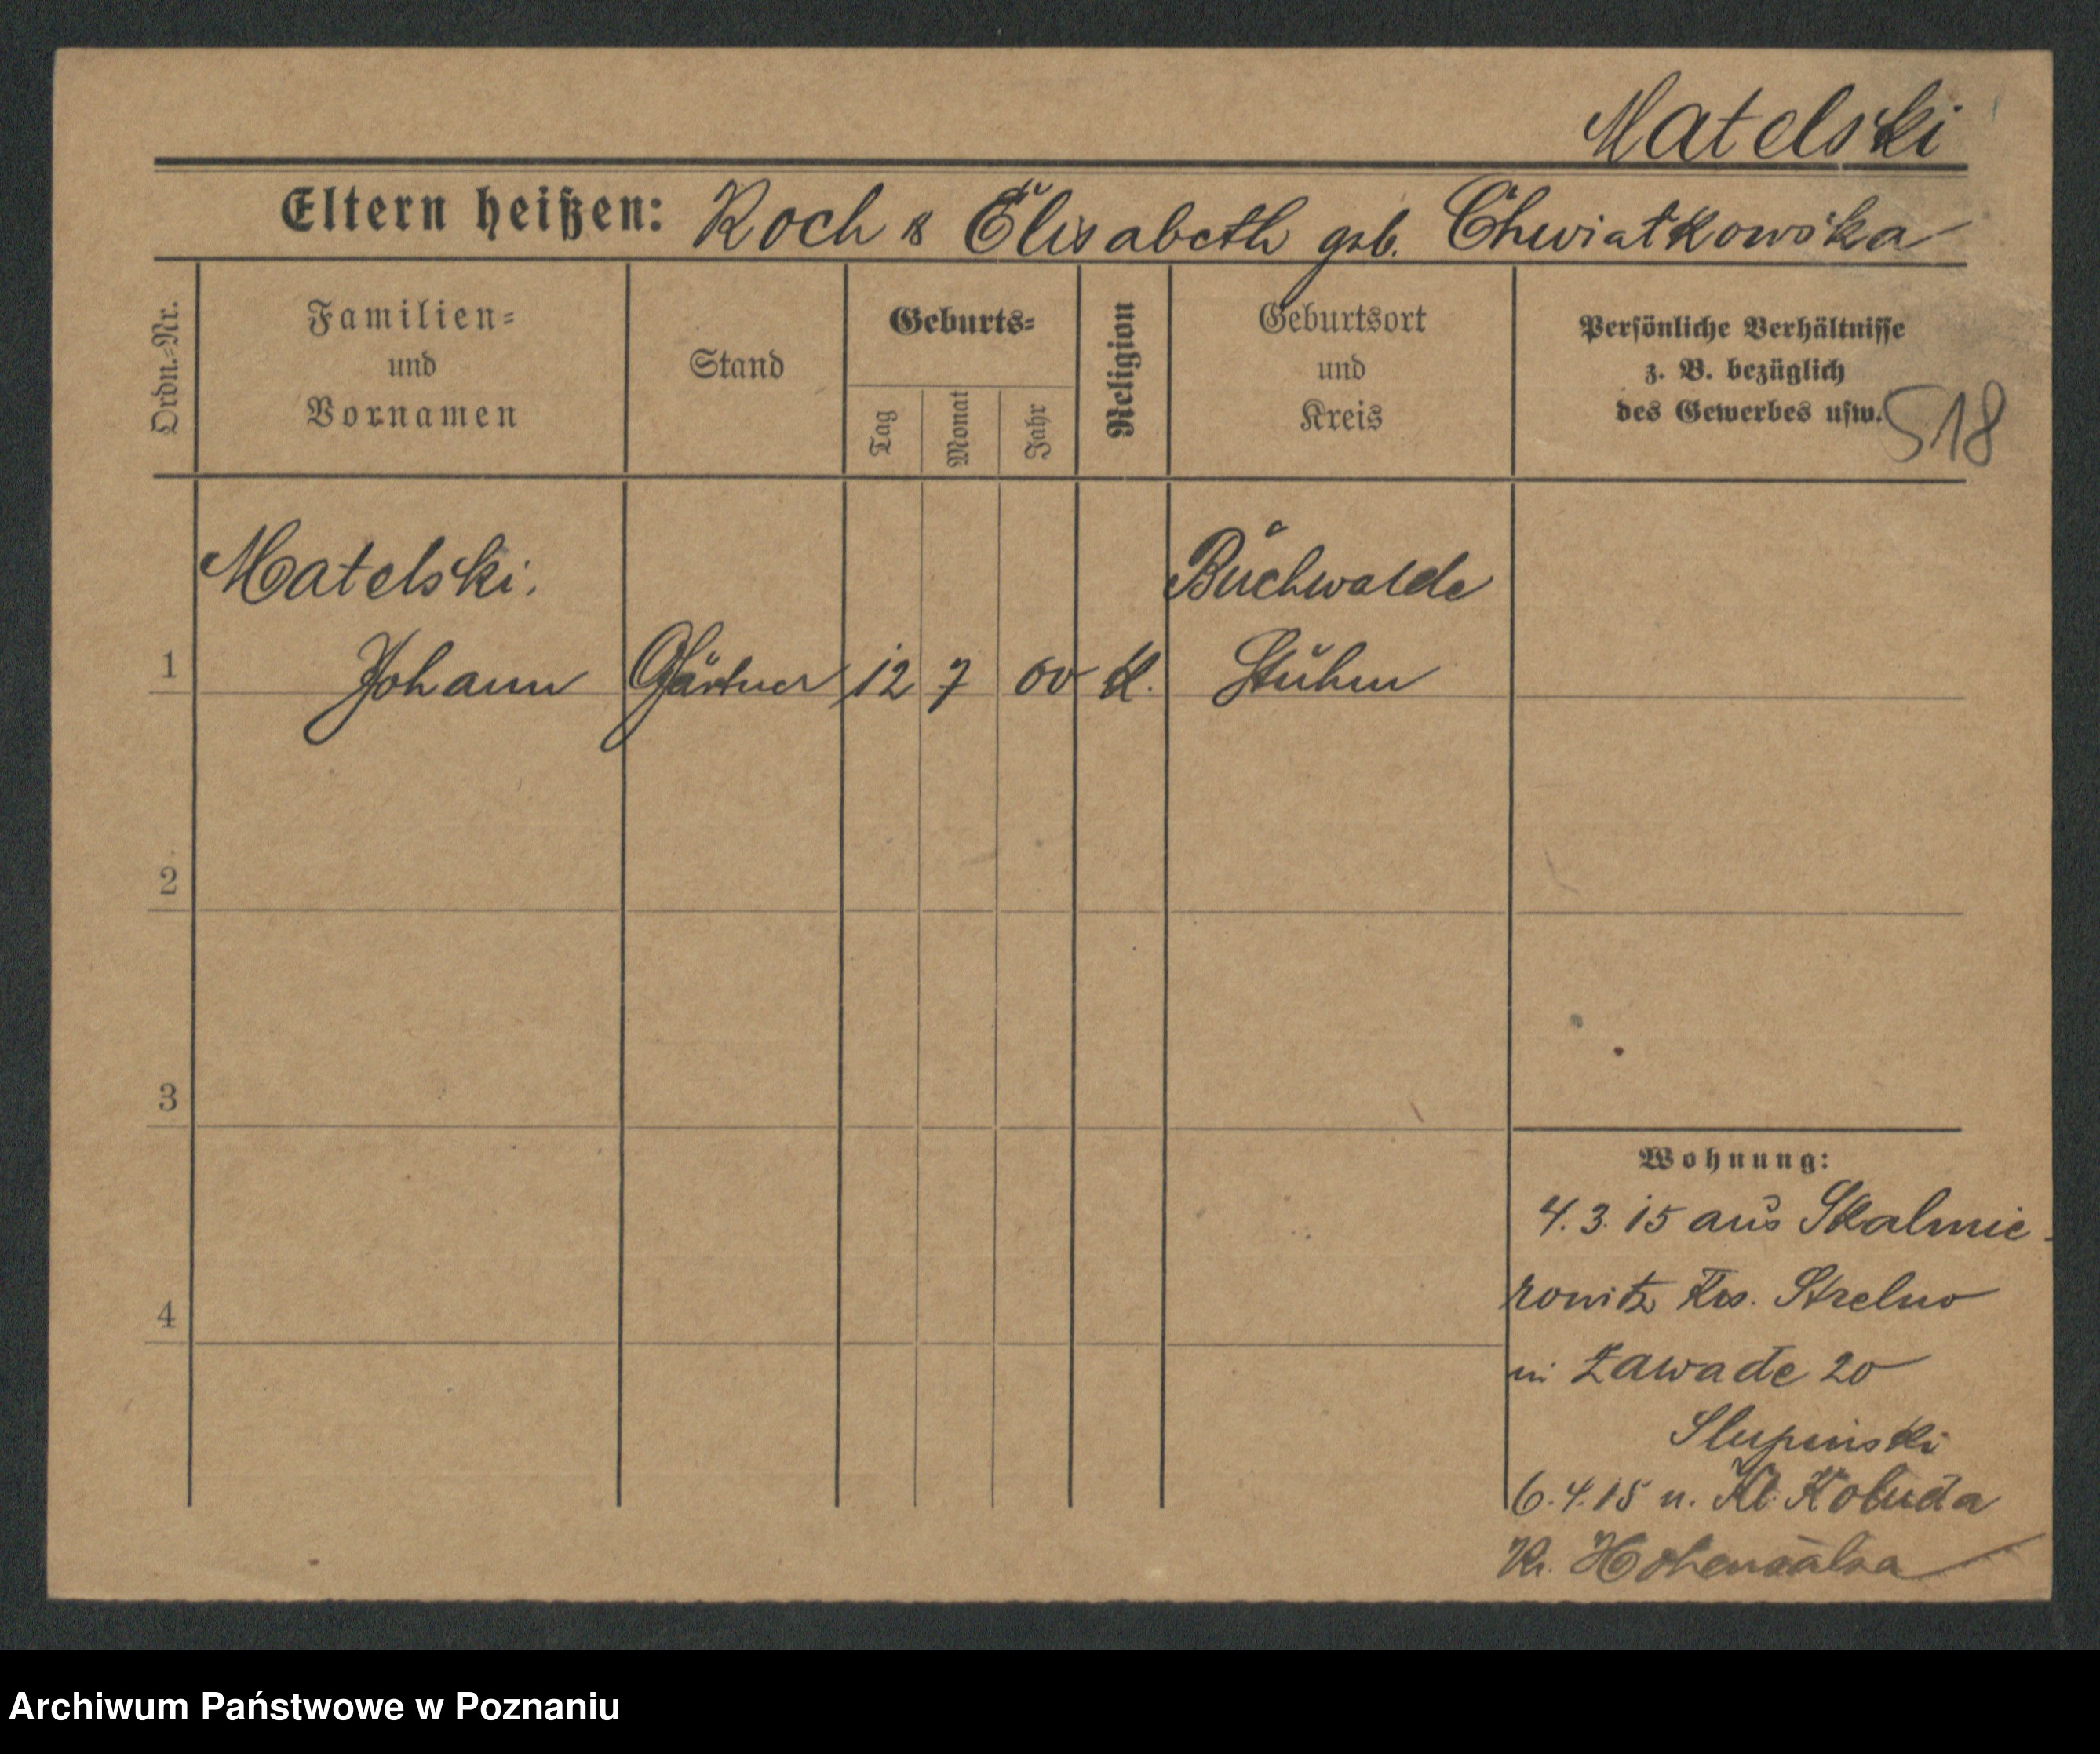 Matelski
Eltern heißen: Roch & Elisabeth geb. Chwiatkowska
Ordn.-Nr.
Familien-
und
Vornamen
Stand
Geburts-
Tag
Monat
Jahr
Religion
Geburtsort
und
Kreis
Persönliche Verhältnisse
z. B. bezüglich
des Gewerbes usw.
518
Matelski.
Buchwalde
1 Johann Gärtner 12 7 00 k. Stuhm
2
3
4
Wohnung:
4. 3. 15 aus Skalmie-
rowitz Krs. Strelno
in Zawade 20
Slupinski
6. 4. 15 n. Kl. Koluda
Kr. Hohensalza
Archiwum Państwowe w Poznaniu